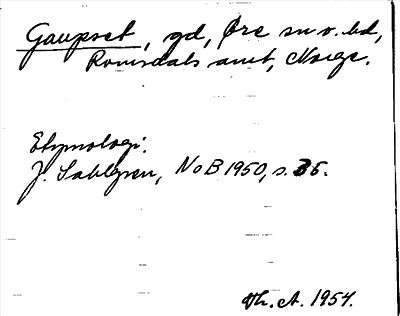 Gaupset, gd, Øre sn o. hd,
Romsdals amt, Norge.
Etymologi:
J. Sahlgren, NoB 1950, s. 35.
Vh. A. 1954.